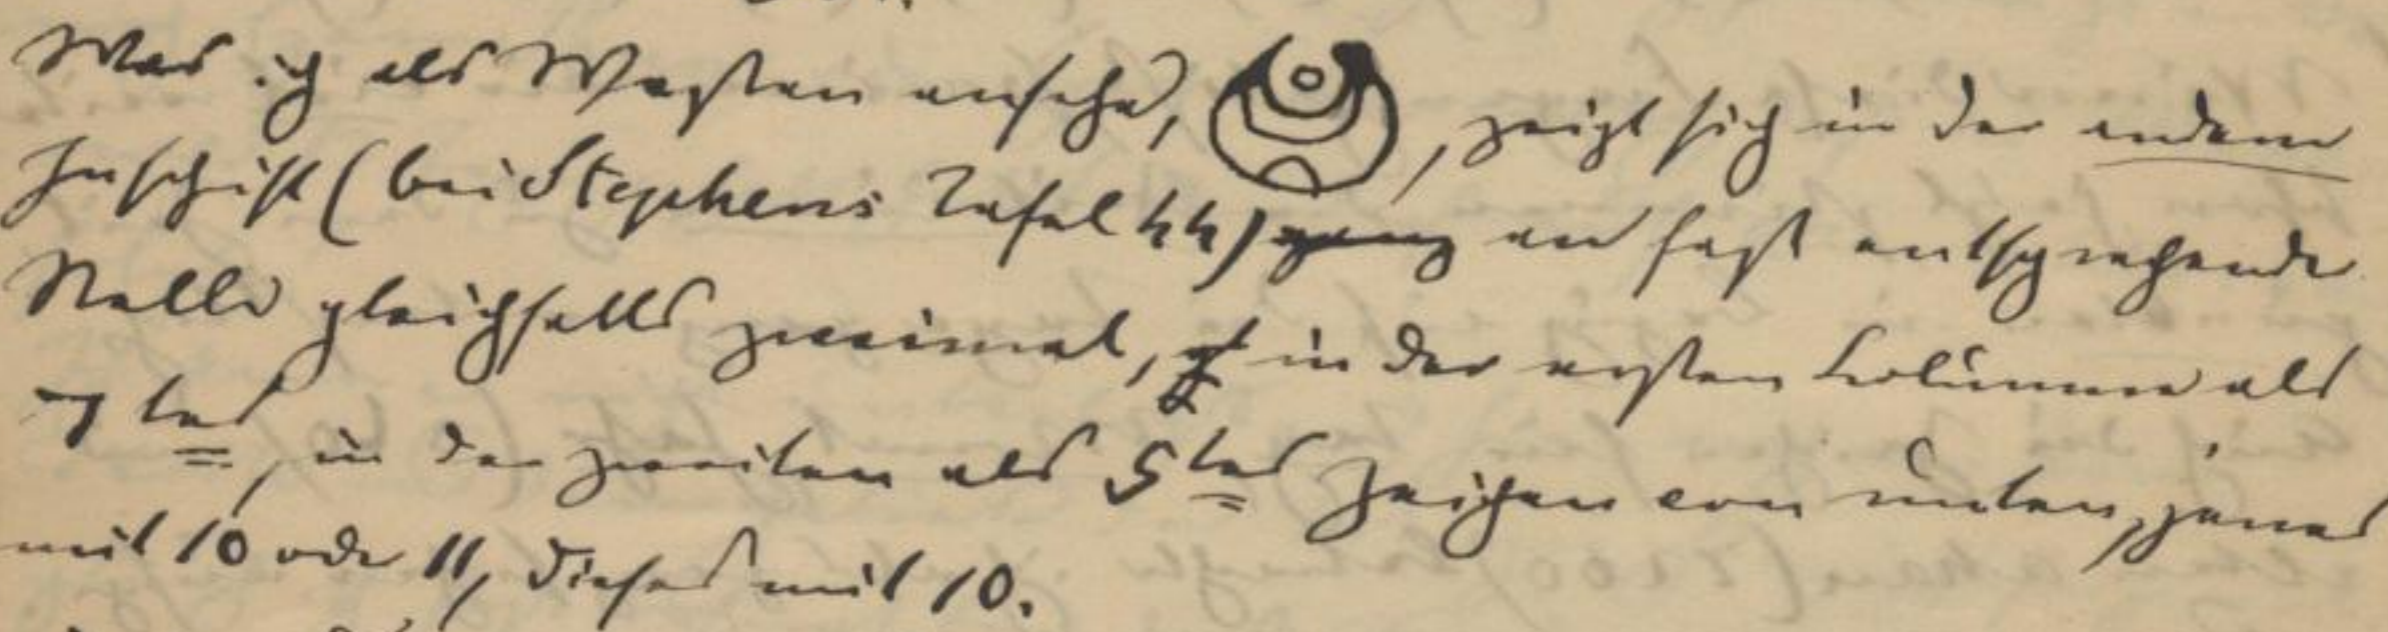 Was ich als Westen ansehe, , zeigt sich in der andern
Inschrift (bei Stephens Tafel 44) ganz an fast entsprechender
Stelle gleichfalls zweimal, in der ersten Columne als
7tes, in der zweiten als 5tes Zeichen von unten, jenes
mit 10 oder 11, dieses mit 10.